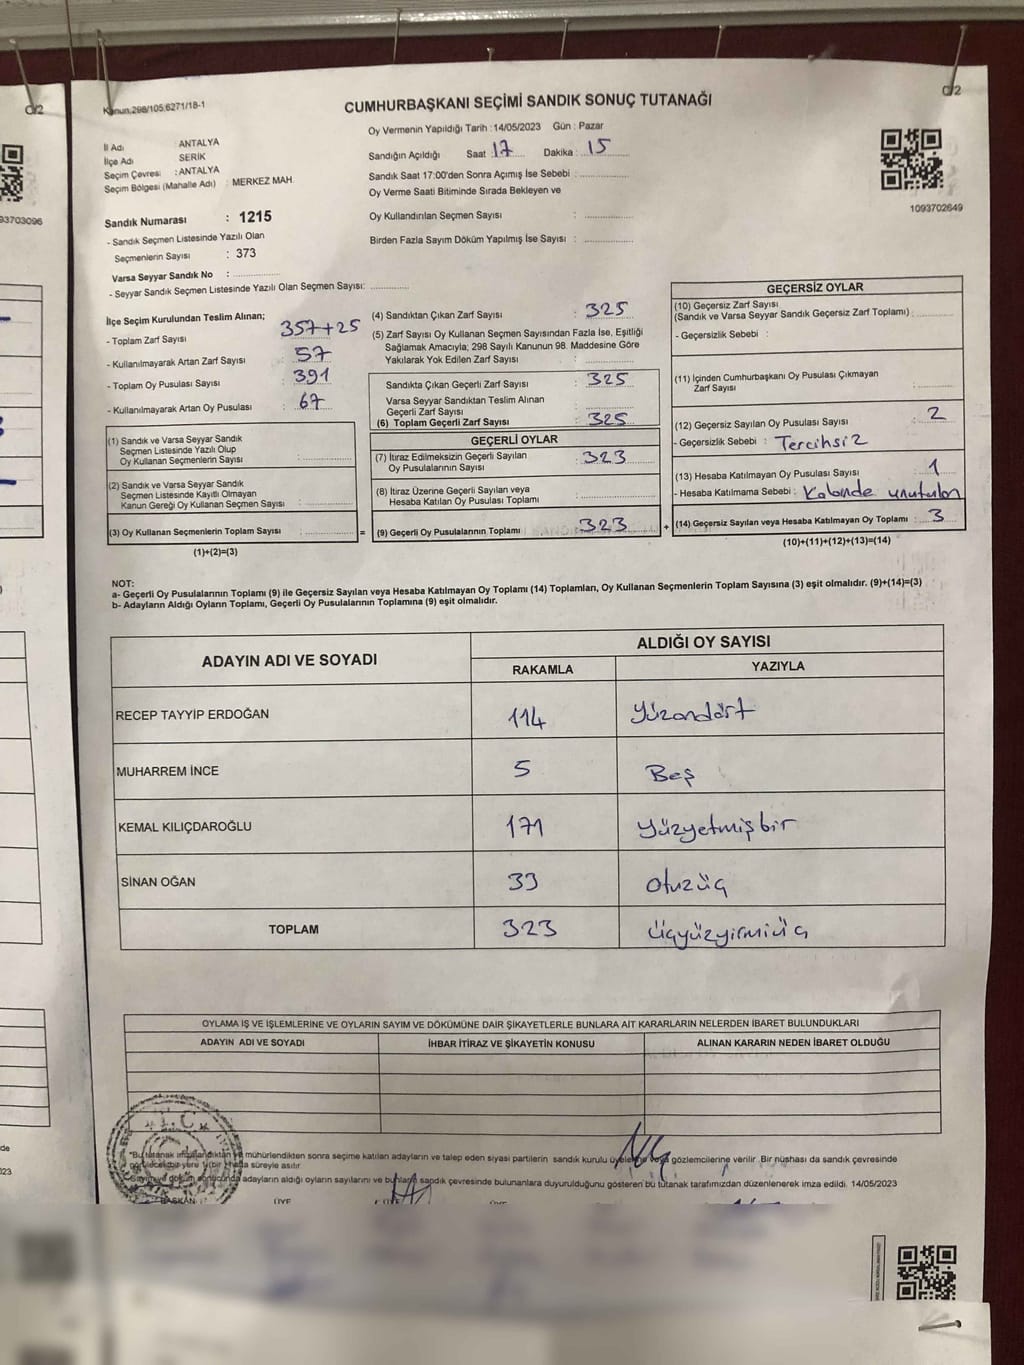 C/2
C/2
93703096
Kanun:298/105;6271/18-1
CUMHURBAŞKANI SEÇİMİ SANDIK SONUÇ TUTANAĞI
İl Adı : ANTALYA
İlçe Adı SERİK
Seçim Çevresi : ANTALYA
Seçim Bölgesi (Mahalle Adı) : MERKEZ MAH.
Sandık Numarası : 1215
- Sandık Seçmen Listesinde Yazılı Olan
Seçmenlerin Sayısı : 373
Varsa Seyyar Sandık No :
- Seyyar Sandık Seçmen Listesinde Yazılı Olan Seçmen Sayısı:
Oy Vermenin Yapıldığı Tarih :14/05/2023 Gün : Pazar
Sandığın Açıldığı Saat 17 Dakika : 15
Sandık Saat 17:00'den Sonra Açımış İse Sebebi :
Oy Verme Saati Bitiminde Sırada Bekleyen ve
Oy Kullandırılan Seçmen Sayısı :
Birden Fazla Sayım Döküm Yapılmış İse Sayısı :
1093702649
İlçe Seçim Kurulundan Teslim Alınan;
- Toplam Zarf Sayısı : 357+25
- Kullanılmayarak Artan Zarf Sayısı : 57
- Toplam Oy Pusulası Sayısı : 391
- Kullanılmayarak Artan Oy Pusulası : 67
(1) Sandık ve Varsa Seyyar Sandık
Seçmen Listesinde Yazılı Olup
Oy Kullanan Seçmenlerin Sayısı :
(2) Sandık ve Varsa Seyyar Sandık
Seçmen Listesinde Kayıtlı Olmayan
Kanun Gereği Oy Kullanan Seçmen Sayısı :
(3) Oy Kullanan Seçmenlerin Toplam Sayısı : =
(1)+(2)=(3)
(4) Sandıktan Çıkan Zarf Sayısı : 325
(5) Zarf Sayısı Oy Kullanan Seçmen Sayısından Fazla İse, Eşitliği
Sağlamak Amacıyla; 298 Sayılı Kanunun 98. Maddesine Göre
Yakılarak Yok Edilen Zarf Sayısı :
Sandıkta Çıkan Geçerli Zarf Sayısı : 325
Varsa Seyyar Sandıktan Teslim Alınan
Geçerli Zarf Sayısı :
(6) Toplam Geçerli Zarf Sayısı : 325
GEÇERLİ OYLAR
(7) İtiraz Edilmeksizin Geçerli Sayılan
Oy Pusulalarının Sayısı : 323
(8) İtiraz Üzerine Geçerli Sayılan veya
Hesaba Katılan Oy Pusulaları Toplamı :
(9) Geçerli Oy Pusulalarının Toplamı : 323 +
GEÇERSİZ OYLAR
(10) Geçersiz Zarf Sayısı
(Sandık ve Varsa Seyyar Sandık Geçersiz Zarf Toplamı) :
- Geçersizlik Sebebi :
(11) İçinden Cumhurbaşkanı Oy Pusulası Çıkmayan
Zarf Sayısı :
(12) Geçersiz Sayılan Oy Pusulası Sayısı : 2
- Geçersizlik Sebebi : Tercihsiz
(13) Hesaba Katılmayan Oy Pusulası Sayısı : 1
- Hesaba Katılmama Sebebi : Kabinde unutulan
(14) Geçersiz Sayılan veya Hesaba Katılmayan Oy Toplamı : 3
(10)+(11)+(12)+(13)=(14)
NOT:
a- Geçerli Oy Pusulalarının Toplamı (9) ile Geçersiz Sayılan veya Hesaba Katılmayan Oy Toplamı (14) Toplamları, Oy Kullanan Seçmenlerin Toplam Sayısına (3) eşit olmalıdır. (9)+(14)=(3)
b- Adayların Aldığı Oyların Toplamı, Geçerli Oy Pusulalarının Toplamına (9) eşit olmalıdır.
ADAYIN ADI VE SOYADI
ALDIĞI OY SAYISI
RAKAMLA YAZIYLA
RECEP TAYYİP ERDOĞAN 114 Yüzondört
MUHARREM İNCE 5 Beş
KEMAL KILIÇDAROĞLU 171 Yüzyetmişbir
SİNAN OĞAN 33 Otuzüç
TOPLAM 323 Üçyüzyirmiüç
OYLAMA İŞ VE İŞLEMLERİNE VE OYLARIN SAYIM VE DÖKÜMÜNE DAİR ŞİKAYETLERLE BUNLARA AİT KARARLARIN NELERDEN İBARET BULUNDUKLARI
ADAYIN ADI VE SOYADI İHBAR İTİRAZ VE ŞİKAYETİN KONUSU ALINAN KARARIN NEDEN İBARET OLDUĞU
T.C.
mühürlendikten sonra seçime katılan adayların ve talep eden siyasi partilerin sandık kurulu gözlemcilerine verilir. Bir nüshası da sandık çevresinde
süreyle asılır.
adayların aldığı oyların sayılarını ve sandık çevresinde bulunanlara duyurulduğunu gösteren bu tutanak tarafımızdan düzenlenerek imza edildi. 14/05/2023
BAŞKAN ÜYE